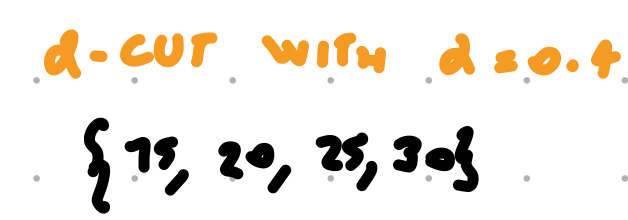 α-CUT WITH α = 0.4
{15, 20, 25, 30}